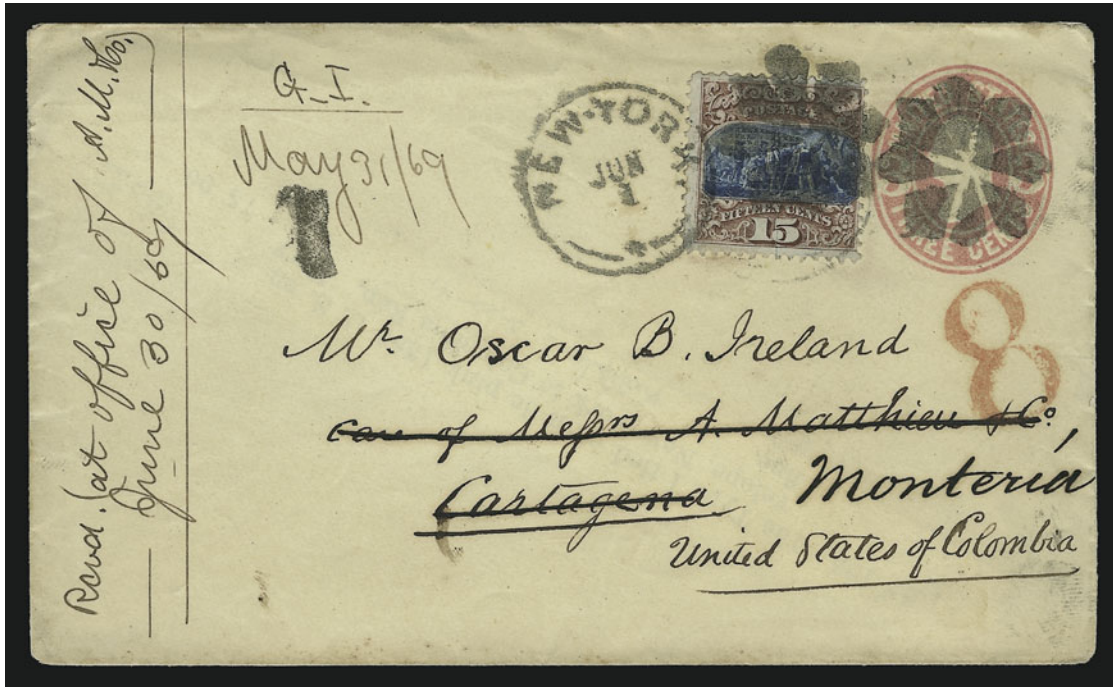 Recvd. (at office of A.M.&Co.)
June 30/69
G_I.
May 31/69
1
NEW-YORK
JUN
1
POSTAGE
FIFTEEN CENTS
15
THREE CENTS
8
Mr. Oscar B. Ireland
care of Messrs A. Matthieu & Co.,
Cartagena Monteria
United States of Colombia